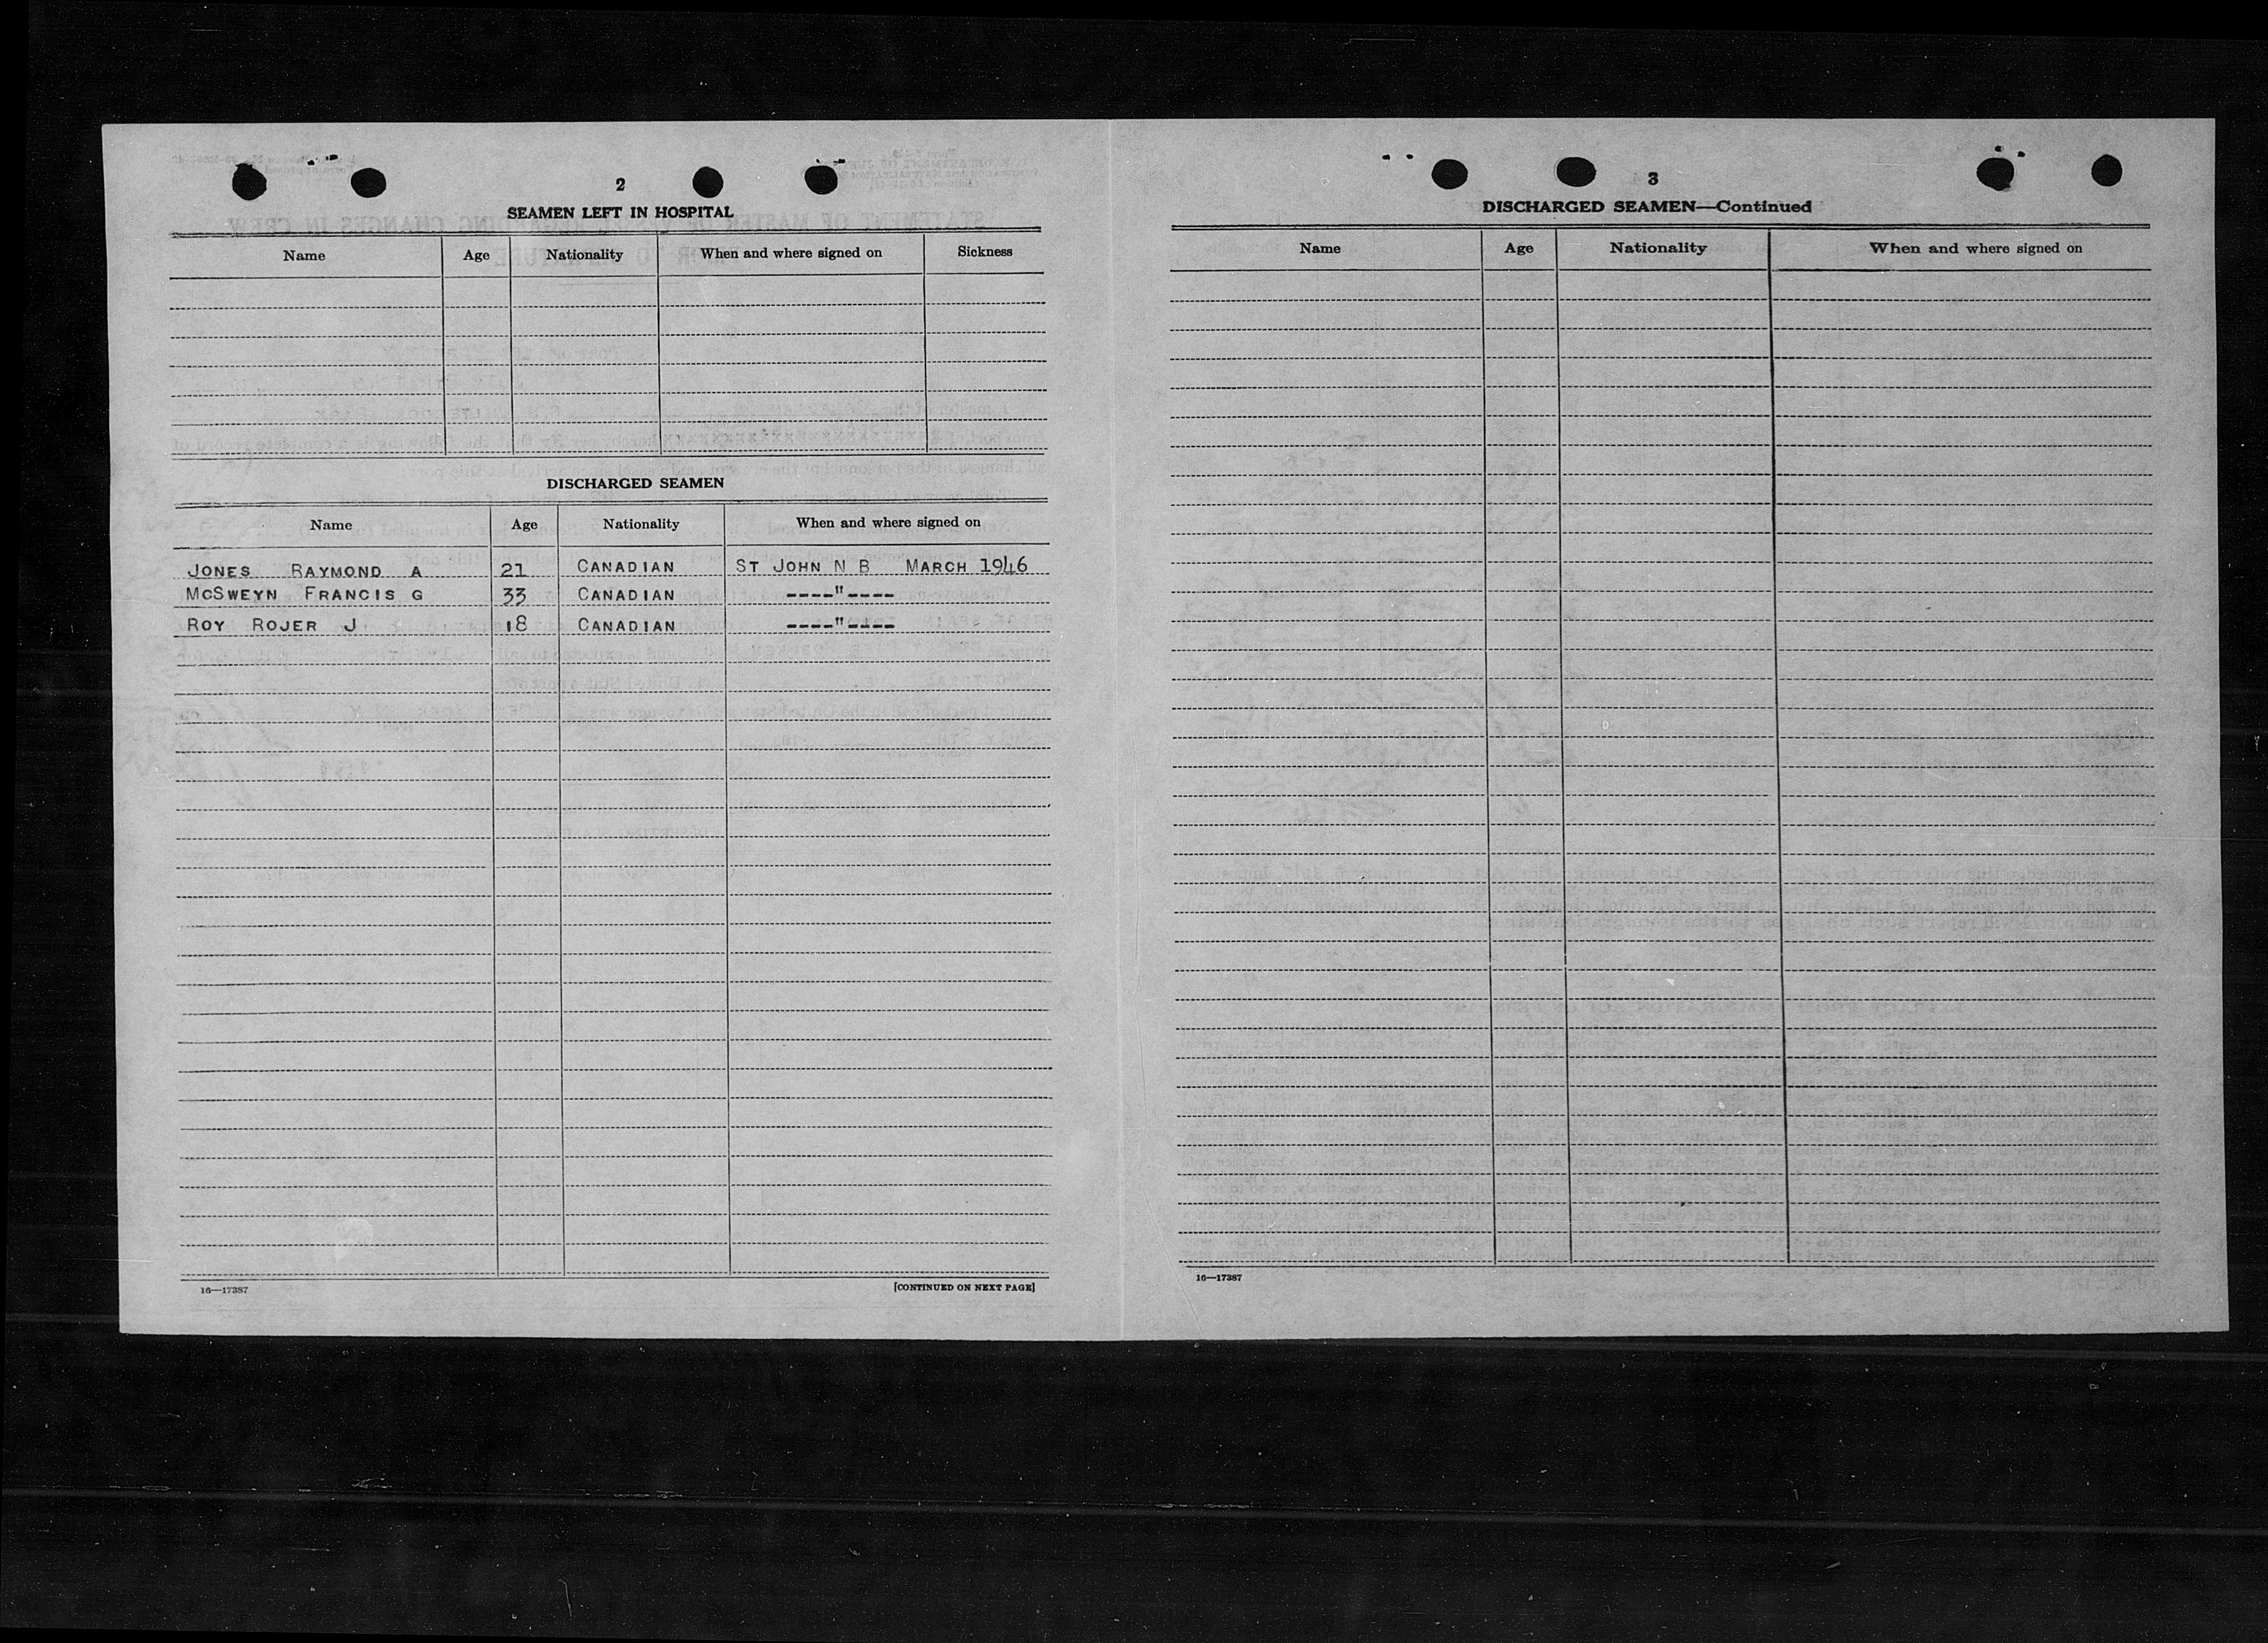 2
SEAMEN LEFT IN HOSPITAL
Name Age Nationality When and where signed on Sickness
DISCHARGED SEAMEN
Name Age Nationality When and where signed on
JONES RAYMOND A 21 CANADIAN ST JOHN N B MARCH 1946
MCSWEYN FRANCIS G 33 CANADIAN ----"----
ROY ROJER J 18 CANADIAN ----"----
16—17387 [CONTINUED ON NEXT PAGE]
3
DISCHARGED SEAMEN—Continued
Name Age Nationality When and where signed on
16—17387